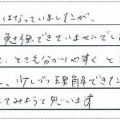 はなっていましたが、
勉強できていませんでし
、とても分かりやすく と
、少しづつ理解できた
してみようと思います